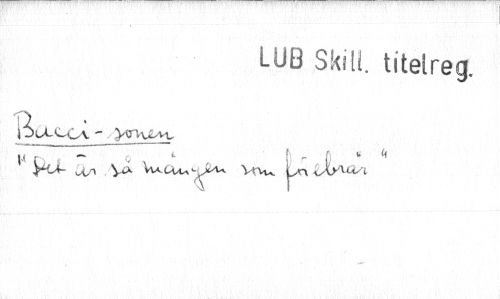 LUB Skill. titelreg.
Bacci-sonen
"Det är så mången som förebrär"